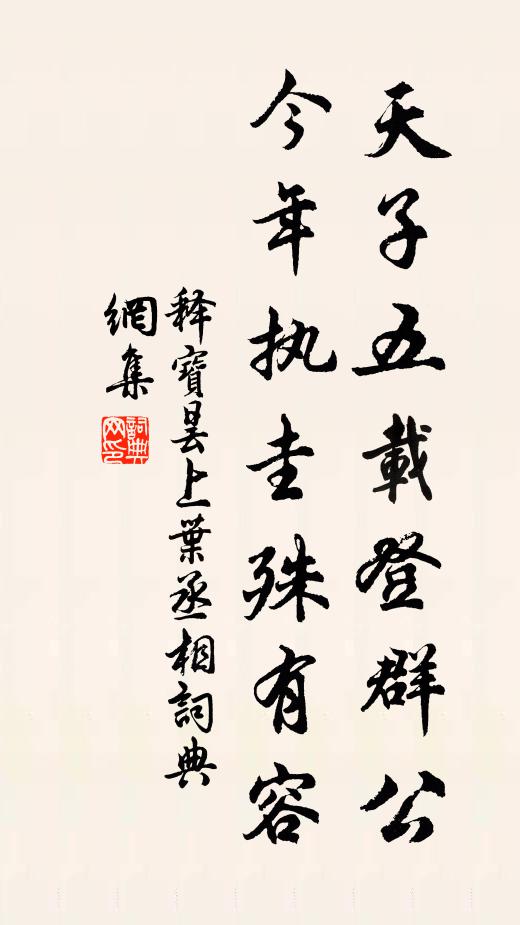 天子五載登群公
今年执圭殊有容
释寶曇上葉丞相詞典
網集
詞典
网印